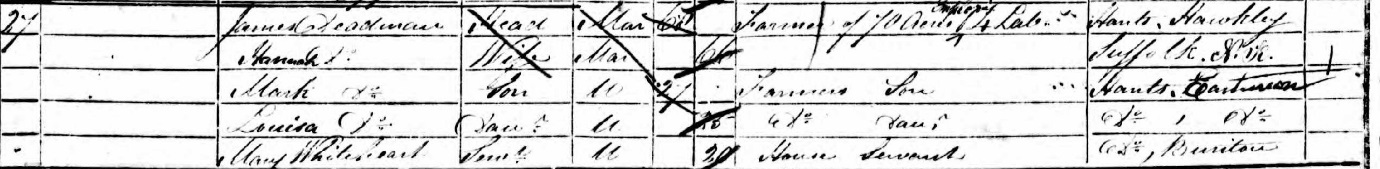 27 James Deadman Head Mar 65 Farmer of 70 Acres employg 4 Labrs Hants. Hawkley
Hannah Do Wife Mar 66 Suffolk. N.K. 1
Mark Do Son U 27 Farmers Son Hants.
Louisa Do Daur U 25 Do Daur Do Do
Mary Whiteheart Servt U 29 House Servant Do, Buriton